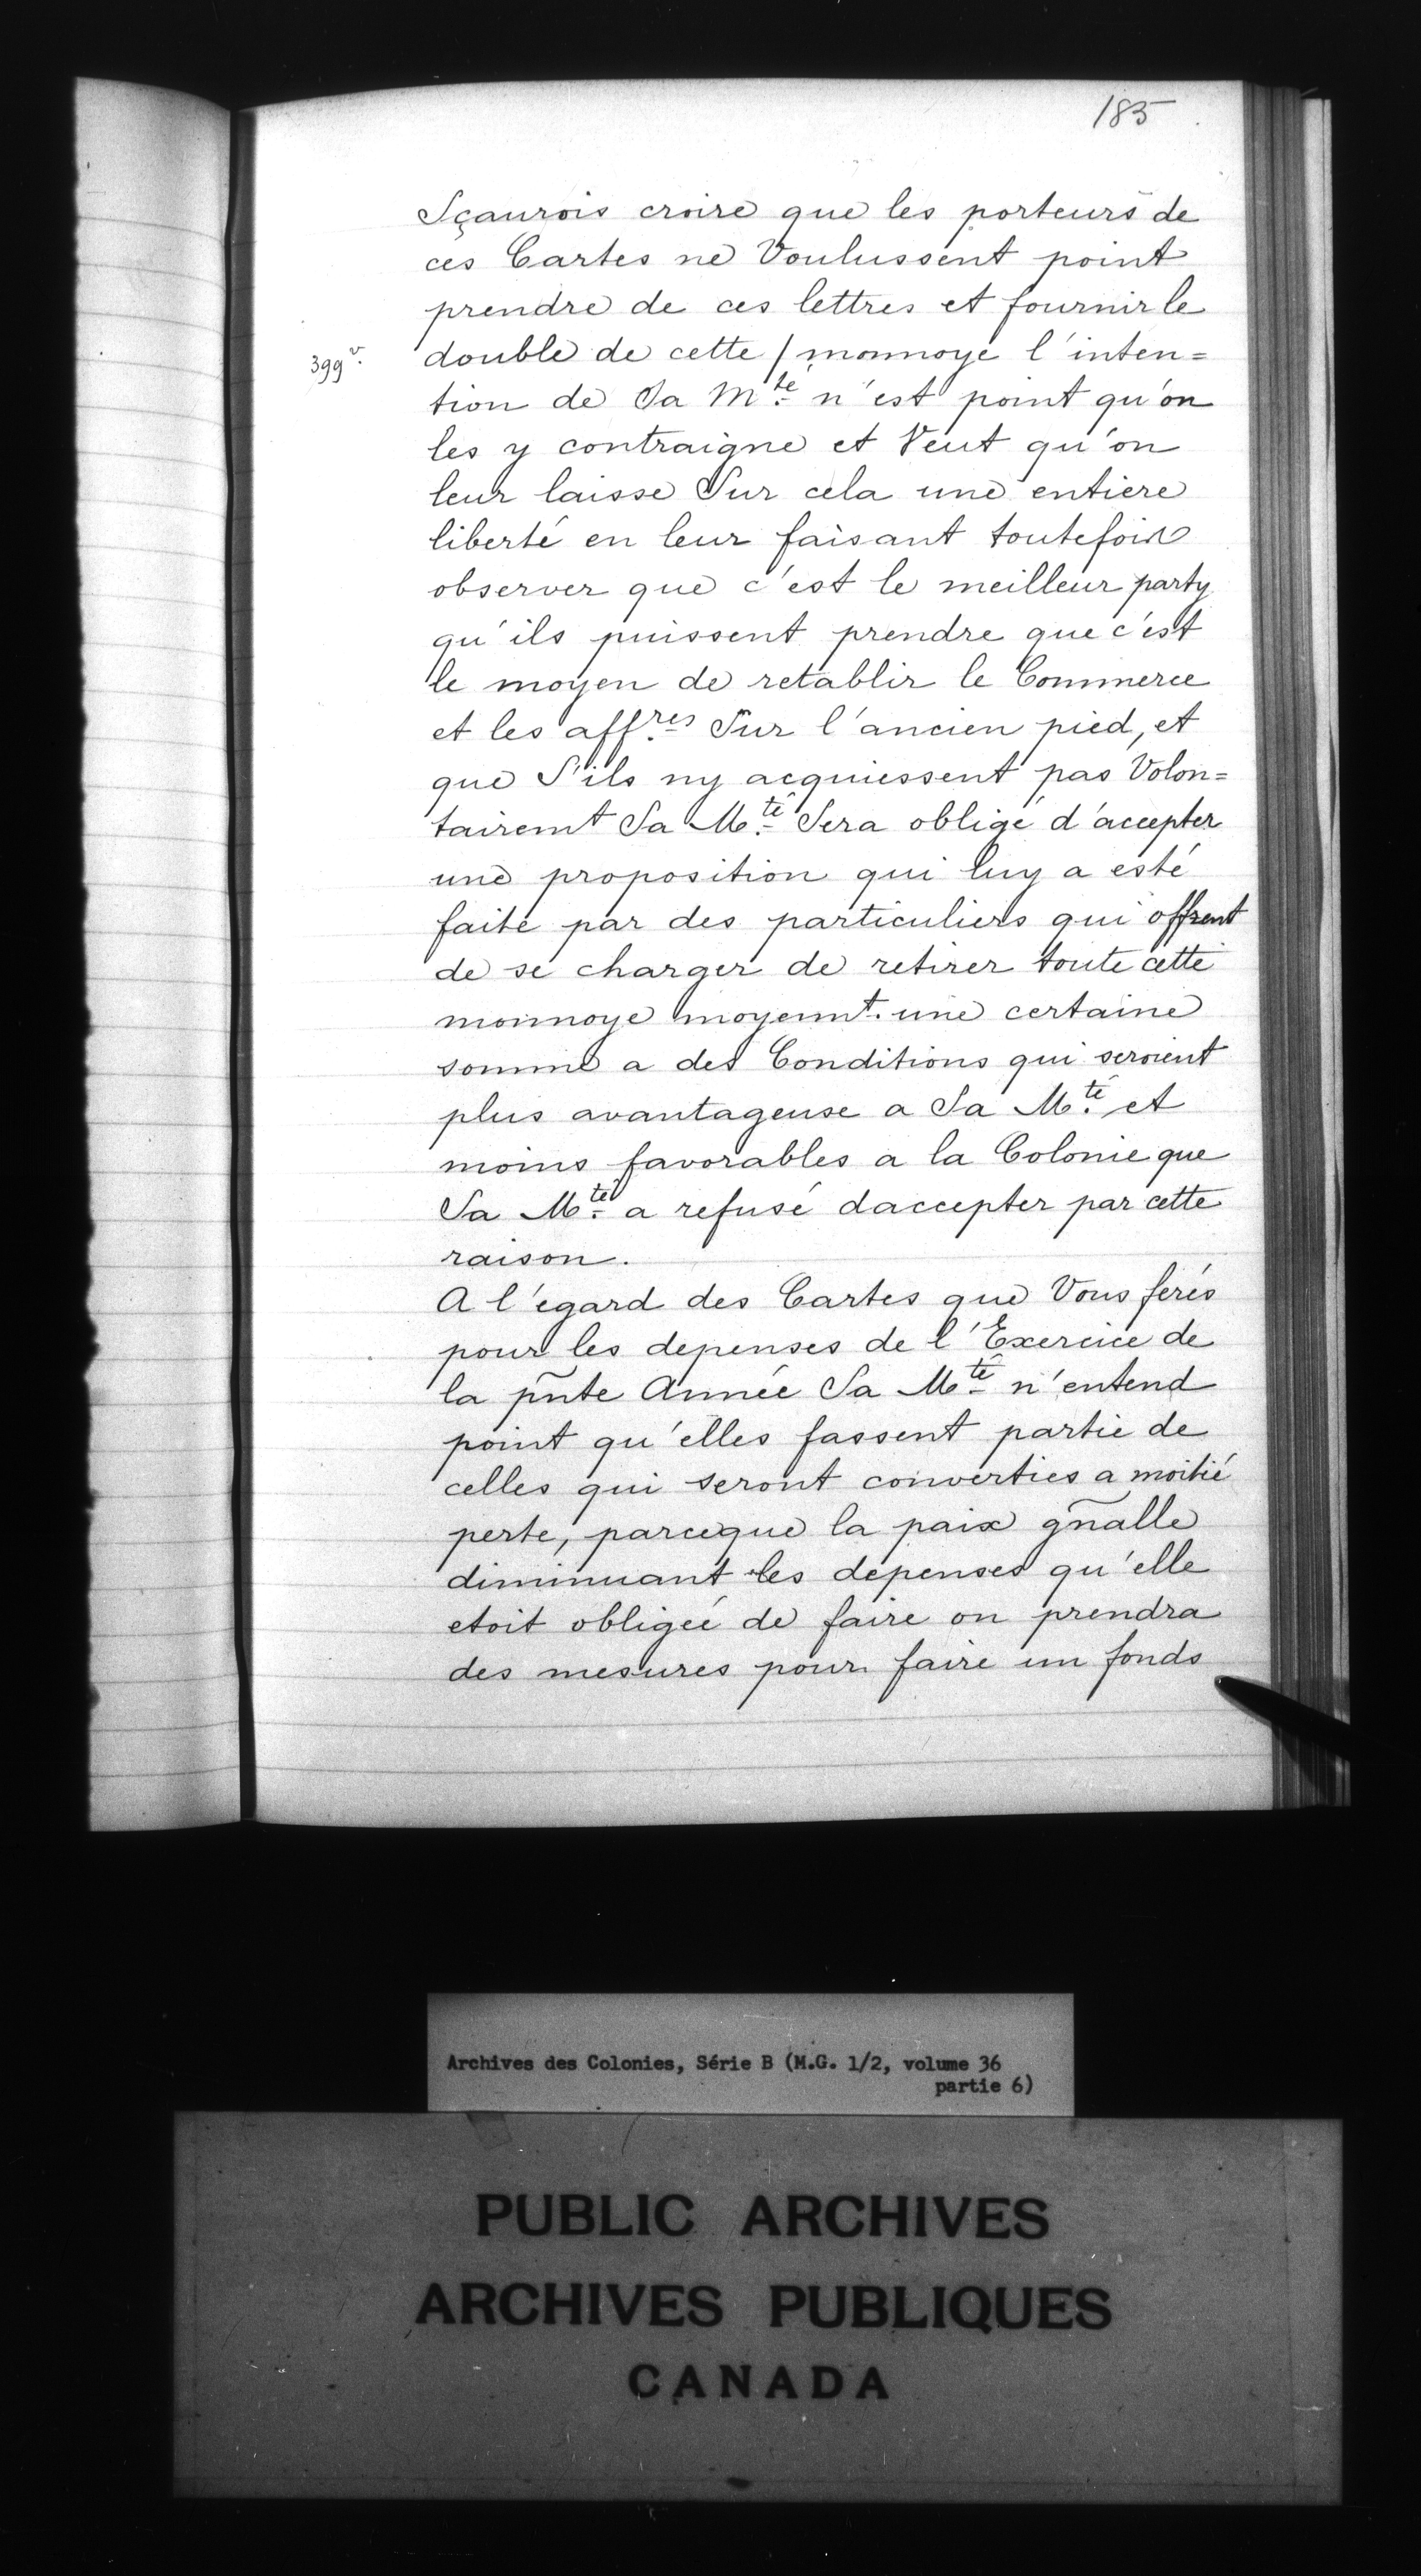 185
Sçaurois croire que les porteurs de
ces Cartes ne Voulussent point
prendre de ces lettres et fournir le
399 v.
double de cette / monnoye l'inten=
tion de Sa Mté n'est point qu'on
les y contraigne et Veut qu'on
leur laisse Sur cela une entiere
liberté en leur faisant toutefois
observer que c'est le meilleur party
qu'ils puissent prendre que c'est
le moyen de retablir le Commerce
et les affres Sur l'ancien pied, et
que S'ils ny acquiessent pas Volon=
tairemt Sa Mté Sera obligé d'accepter
une proposition qui luy a esté
faite par des particuliers qui offrent
de se charger de retirer toute cette
monnoye moyennt. une certaine
somme a des Conditions qui seroient
plus avantageuse a Sa Mté et
moins favorables a la Colonie que
Sa Mté a refusé daccepter par cette
raison.
A l'égard des Cartes que Vous ferés
pour les depenses de l'Exercice de
la pñte Année Sa Mté n'entend
point qu'elles fassent partie de
celles qui seront converties a moitié
perte, parceque la paix gñalle
diminuant les depenses qu'elle
etoit obligeé de faire on prendra
des mesures pour faire un fonds
Archives des Colonies, Série B (M.G. 1/2, volume 36
partie 6)
PUBLIC ARCHIVES
ARCHIVES PUBLIQUES
CANADA